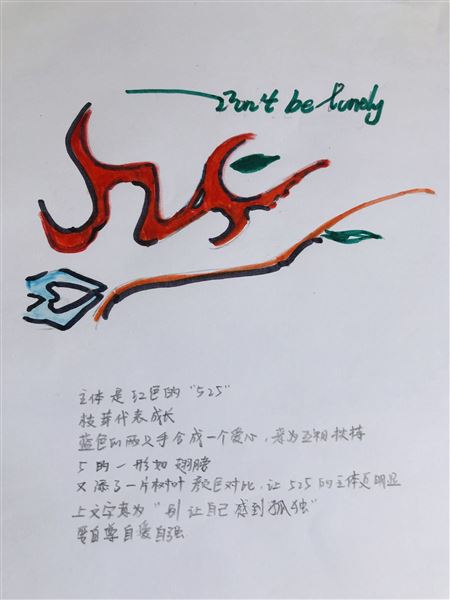 Don't be lonely
525
主体是红色的“525”
枝芽代表成长
蓝色的两只手合成一个爱心，寓为互相扶持
5的一形如翅膀
又添了一片树叶颜色对比，让525的主体更明显
上文字寓为“别让自己感到孤独”
要自尊自爱自强